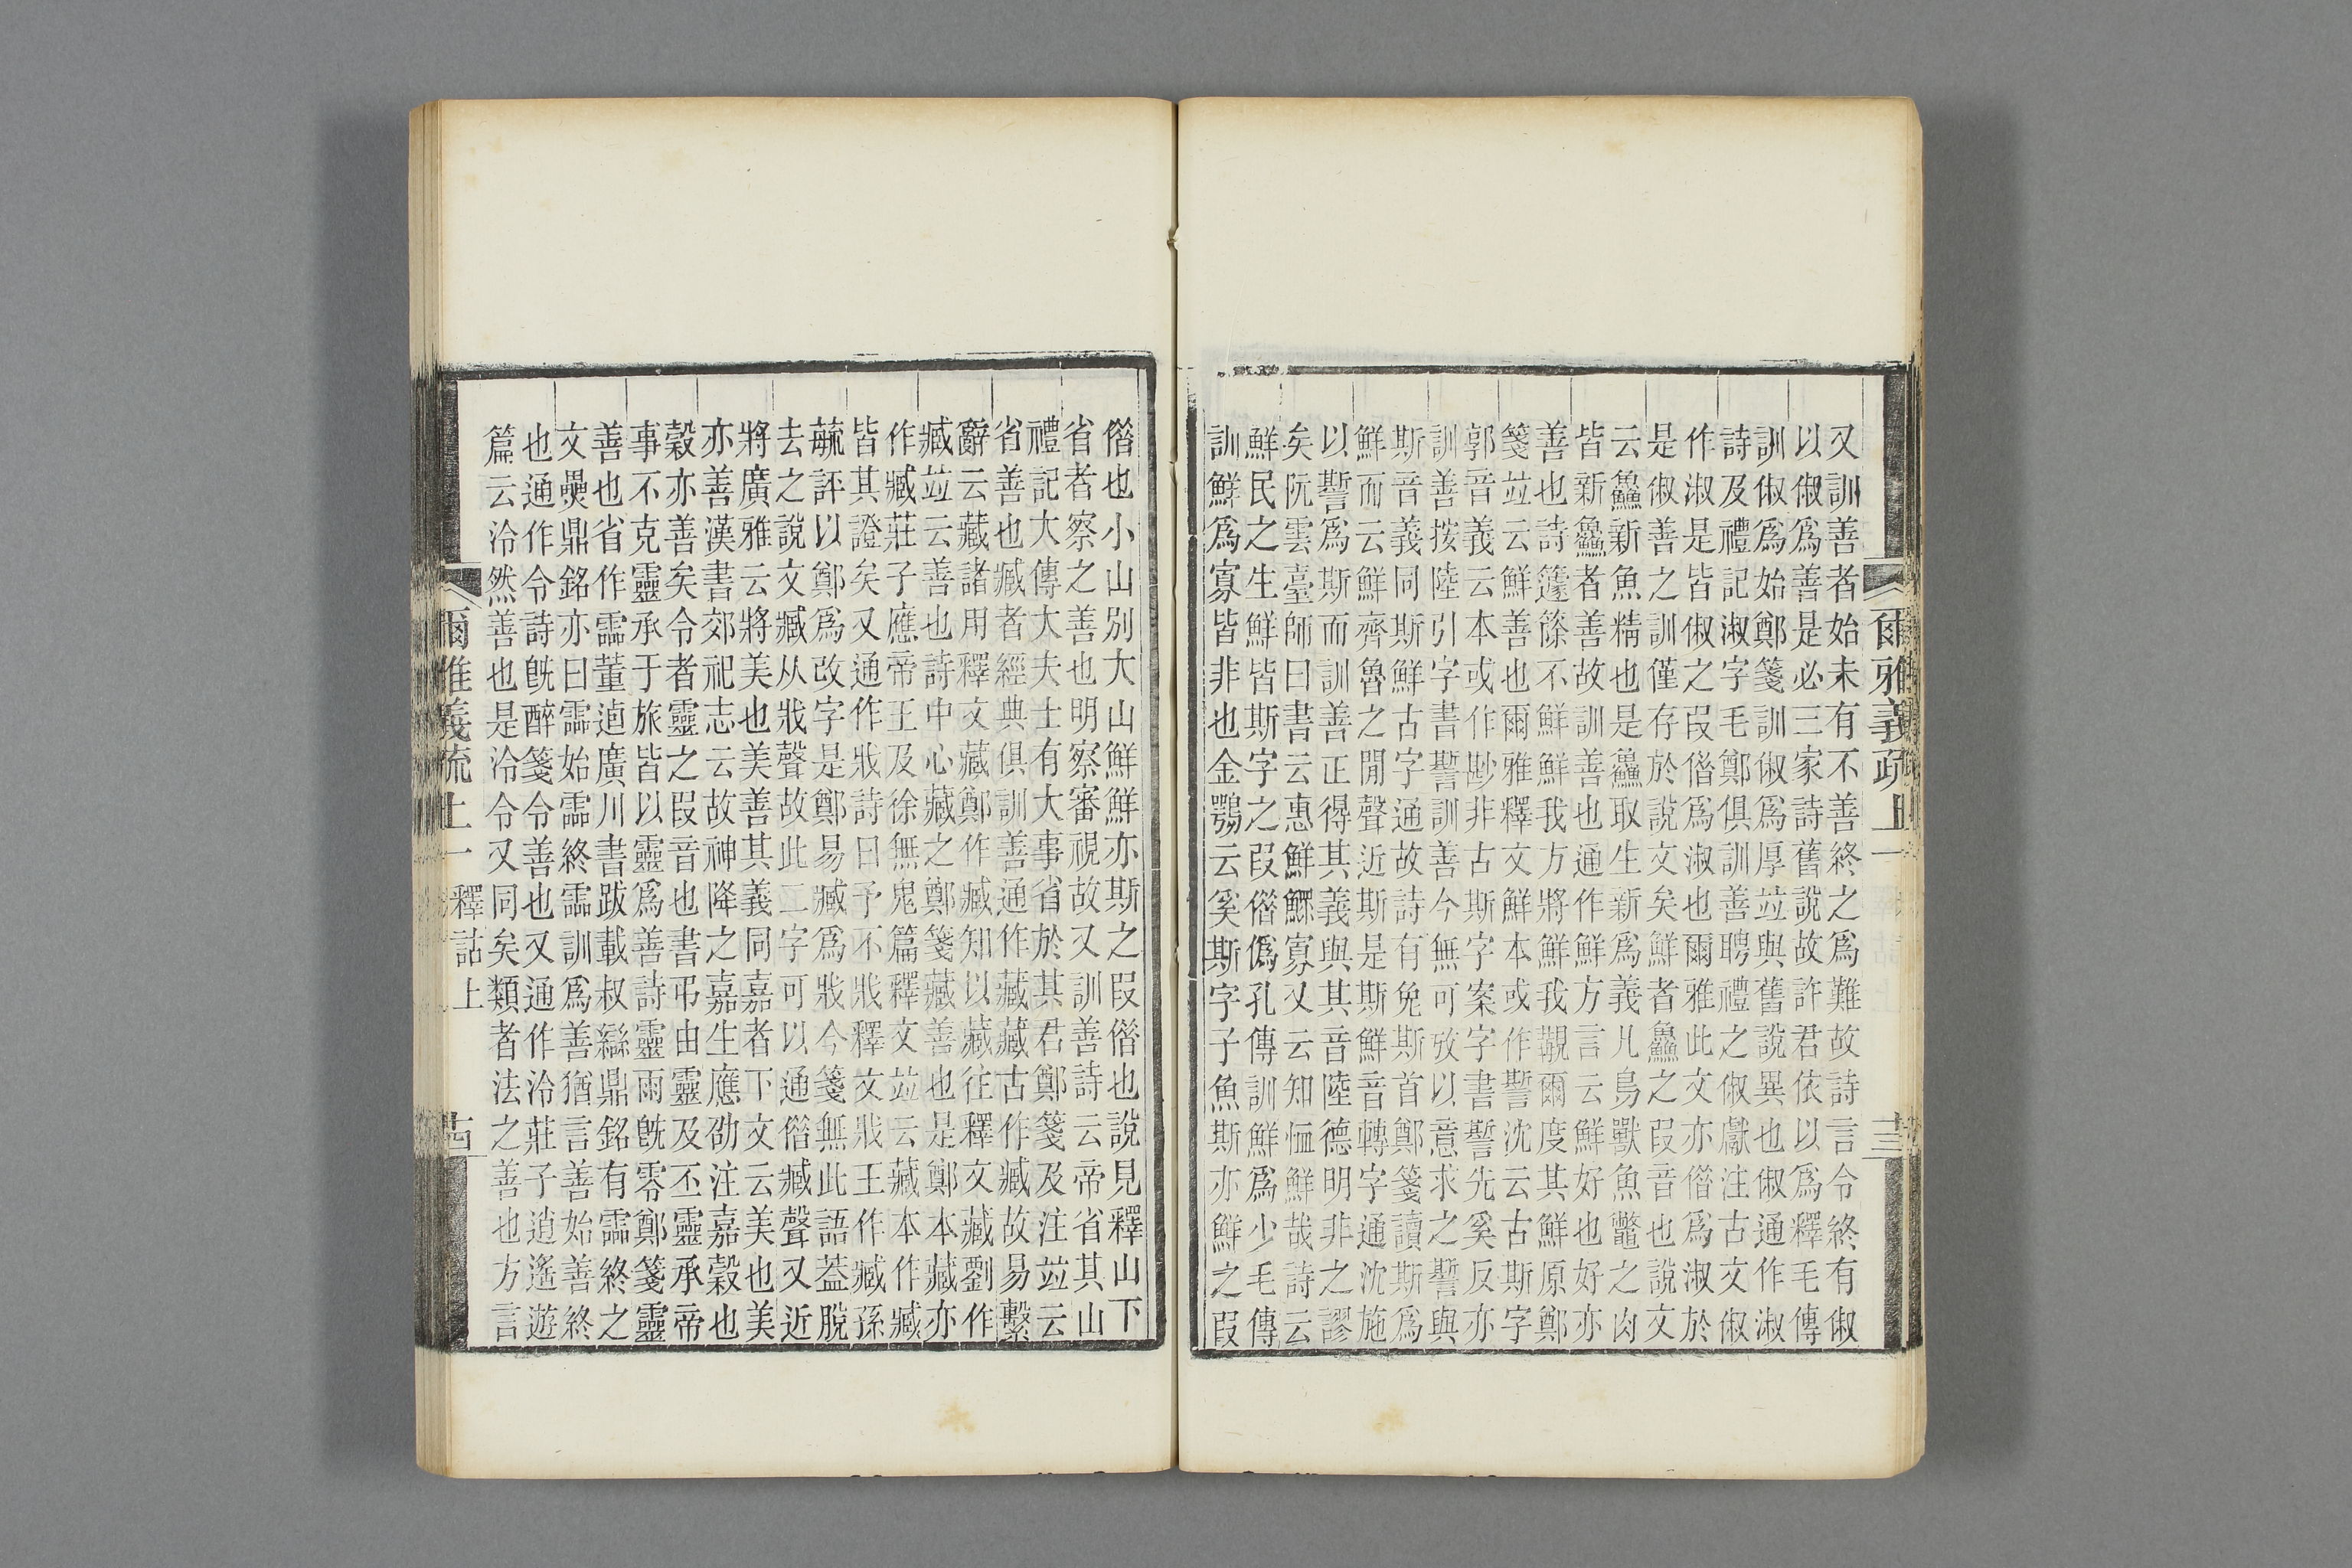 爾雅義疏上一
十三
又訓善者始未有不善終之爲難故詩言令終有俶
以俶爲善是必三家詩舊說故許君依以爲釋毛傳
訓俶爲始鄭箋訓俶爲厚竝與舊說異也俶通作淑
詩及禮記淑字毛鄭俱訓善聘禮之俶獻注古文俶
作淑是皆俶之叚偺爲淑也爾雅此文亦偺爲淑於
是俶善之訓僅存於說文矣鮮者鱻之叚音也說文
云鱻新魚精也是鱻取生新爲義凡鳥獸魚鼈之肉
皆新鱻者善故訓善也通作鮮方言云鮮好也好亦
善也詩籧篨不鮮鮮我方將鮮我覯爾度其鮮原鄭
箋竝云鮮善也爾雅釋文鮮本或作誓沈云古斯字
郭音義云本或作尠非古斯字案字書誓先奚反亦
訓善按陸引字書誓訓善今無可攷以意求之誓與
斯音義同斯鮮古字通故詩有兔斯首鄭箋讀斯爲
鮮而云鮮齊魯之閒聲近斯是斯鮮音轉字通沈施
以誓爲斯而訓善正得其義與其音陸德明非之謬
矣阮雲臺師曰書云惠鮮鰥寡又云知恤鮮哉詩云
鮮民之生鮮皆斯字之叚偺僞孔傳訓鮮爲少毛傳
訓鮮爲寡皆非也金鶚云奚斯字子魚斯亦鮮之叚
偺也小山別大山鮮鮮亦斯之叚偺也說見釋山下
省者察之善也明察審視故又訓善詩云帝省其山
禮記大傳大夫士有大事省於其君鄭箋及注竝云
省善也臧者經典俱訓善通作藏藏古作臧故易繫
辭云藏諸用釋文藏鄭作臧知以藏往釋文藏劉作
臧竝云善也詩中心藏之鄭箋藏善也是鄭本藏亦
作臧莊子應帝王及徐無鬼篇釋文竝云藏本作臧
皆其證矣又通作戕詩曰予不戕釋文戕王作臧孫
毓評以鄭爲改字是鄭易臧爲戕今箋無此語葢脫
去之說文臧从戕聲故此二字可以通偺臧聲又近
將廣雅云將美也美善其義同嘉者下文云美也美
亦善漢書郊祀志云故神降之嘉生應劭注嘉穀也
穀亦善矣令者靈之叚音也書弔由靈及丕靈承帝
事不克靈承于旅皆以靈爲善詩靈雨旣零鄭箋靈
善也省作霝董逌廣川書跋載叔䜌鼎銘有霝終之
文㬪鼎銘亦曰霝始霝終霝訓爲善猶言善始善終
也通作令詩旣醉箋令善也又通作泠莊子逍遙遊
篇云泠然善也是泠令又同矣類者法之善也方言
爾雅義疏上一 釋詁上
十四